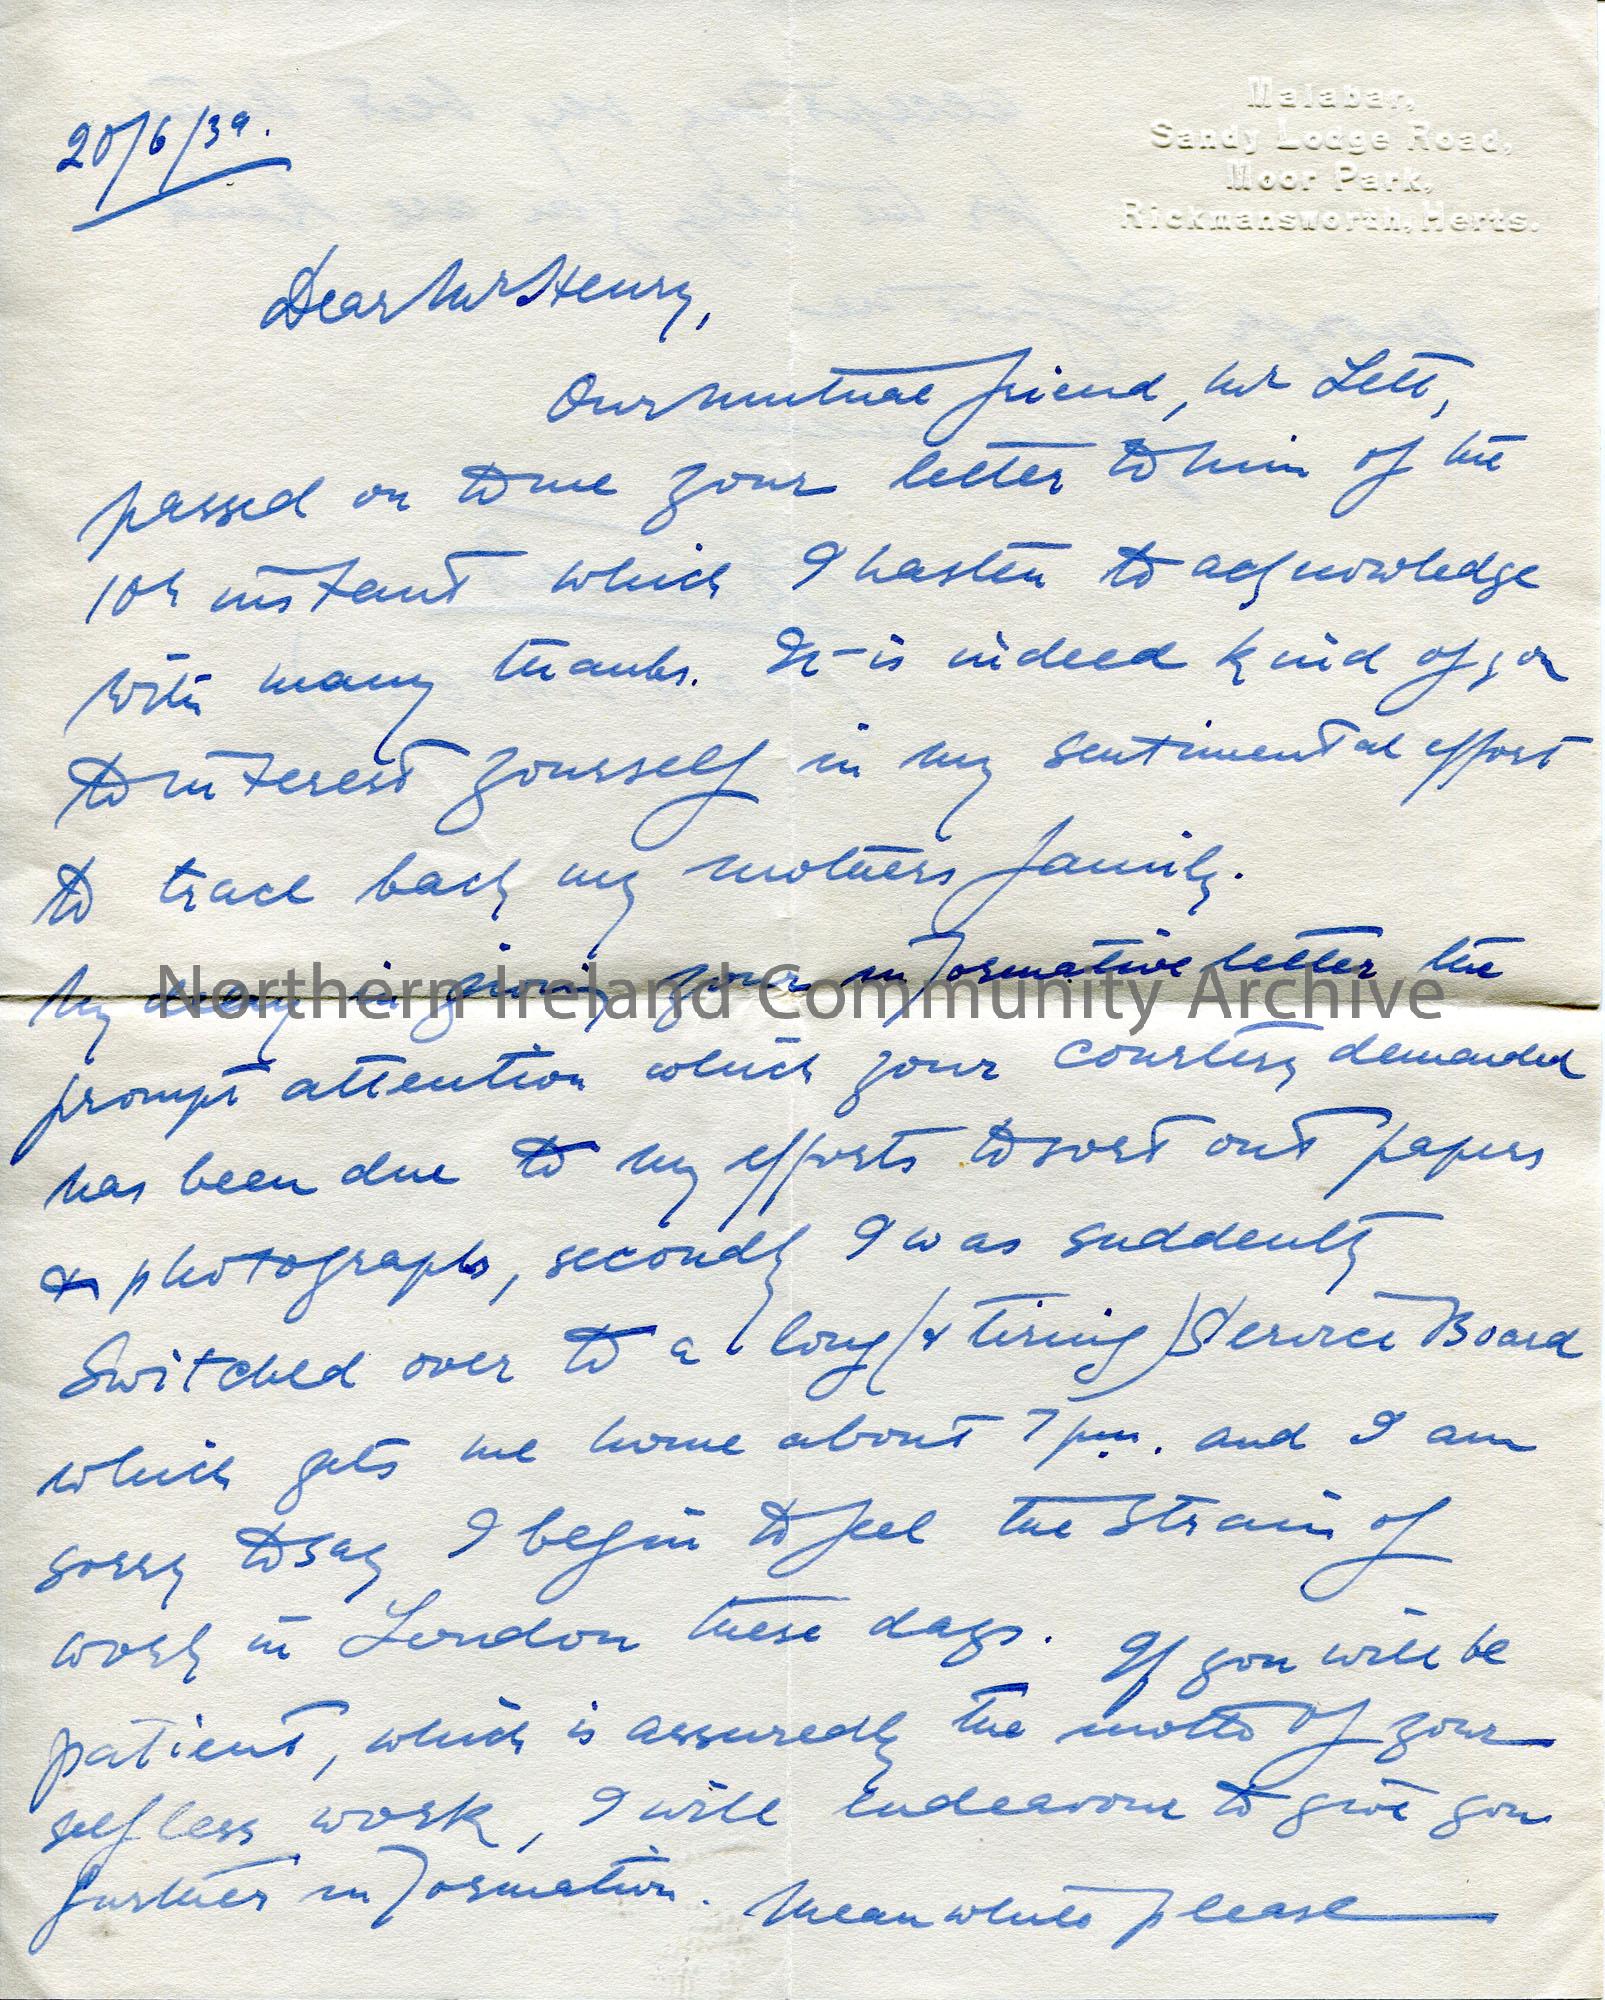 Malabar,
Sandy Lodge Road,
Moor Park,
Rickmansworth, Herts.
20/6/39.
Dear Mr Henry,
Our mutual friend, Mr Lett,
passed on to me your letter to him of the
10th instant which I hasten to acknowledge
with many thanks. It is indeed kind of you
to interest yourself in my sentimental effort
to trace back my mothers family.
My delay in giving your informative letter the
Northern Ireland Community Archive
prompt attention which your courtesy demanded
has been due to my efforts to sort out papers
& photographs, secondly I was suddenly
Switched over to a long (& tiring) Service Board
which gets me home about 7 pm. and I am
sorry to say I begin to feel the strain of
work in London these days. If you will be
patient, which is assuredly the motto of your
selfless work, I will endeavour to give you
further information. Meanwhile please